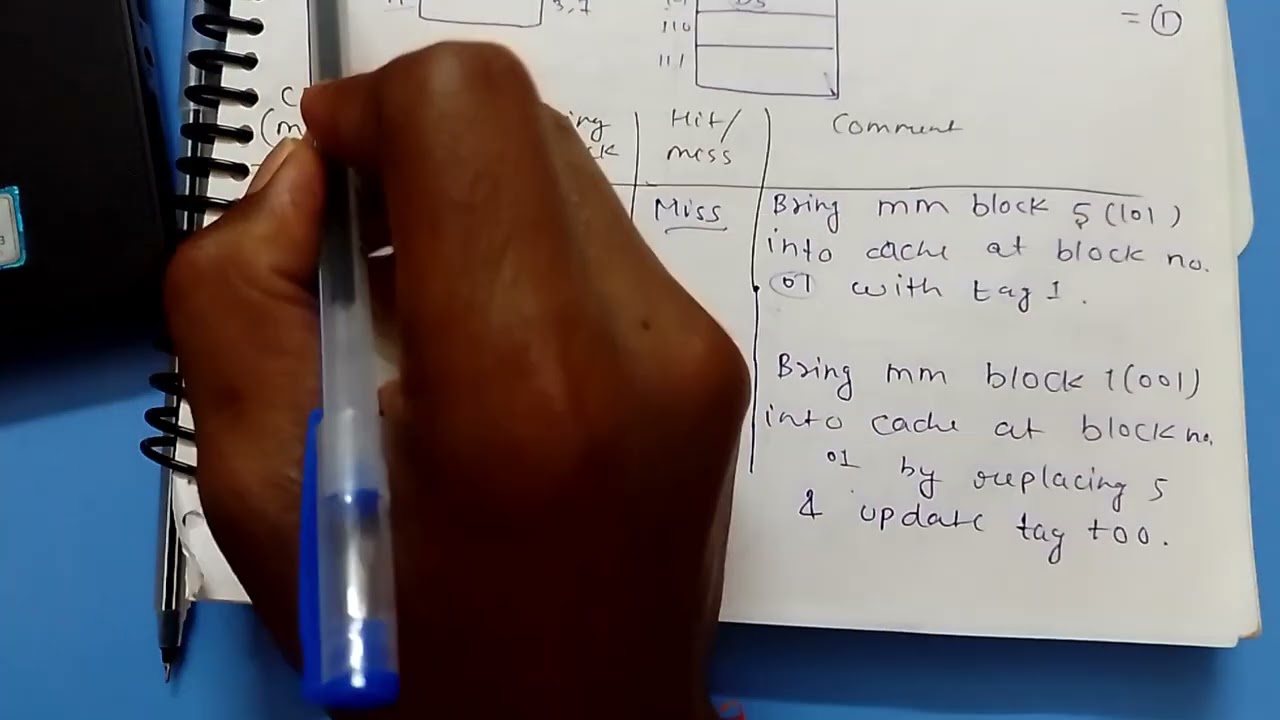 3,7
D5
= ①
110
111
C
(m
ing
ck
Hit/
mess
Comment
Miss
Bring mm block 5 (101)
into cache at block no.
01 with tag 1.
Bring mm block 1(001)
into cache at block no.
01 by replacing 5
& update tag to 0.